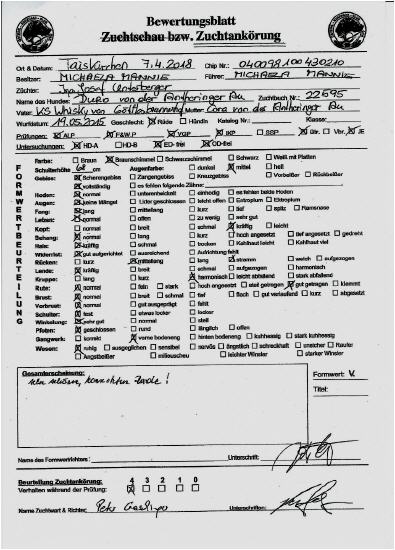 Bewertungsblatt
Zuchtschau bzw. Zuchtankörung
Ort & Datum: Taiskirchen 7.4.2018 Chip Nr.: 040098100430210
Besitzer: MICHAELA MANNIE Führer: MICHAELA MANNIE
Züchter: Josef
Name des Hundes: DUKO von der Antheringer Au Zuchtbuch Nr.: 22595
Vater: Whisky vom Mutter: Cora von der Antheringer Au
Wurfdatum: 19.05.2015 Geschlecht: Rüde Hündin Katalog Nr.: Klasse:
Prüfungen: ALP F&W.P VGP IKP SSP Gbr. Vbr. JE
Untersuchungen: HD-A HD-B ED-frei OD-frei
FORMWERTBEURTEILUNG
Farbe: Braun Braunschimmel Schwarzschimmel Schwarz Weiß mit Platten
Schulterhöhe cm Augenfarbe: dunkel mittel hell
Gebiss: Scherengebiss Zangengebiss Kreuzgebiss Vorbeißer Rückbeißer
vollständig es fehlen folgende Zähne:
Hoden: normal unterentwickelt einhodig es fehlen beide Hoden
Augen: keine Mängel Lider geschlossen leicht offen Entropium Ektropium
Fang: lang mittellang kurz tief spitz Ramsnase
Lefzen: normal offen zu wenig sehr gut
Kopf: lang breit kurz kräftig leicht
Behang: normal lang kurz hoch angesetzt tief angesetzt gedreht
Hals: kräftig schmal trocken Kehlhaut leicht Kehlhaut viel
Widerrist: gut aufgerichtet ausreichend Aufrichtung fehlt
Rücken: kurz mittellang lang stramm weich aufgezogen
Lende: kräftig breit schmal aufgezogen harmonisch
Kruppe: lang kurz harmonisch leicht abfallend stark abfallend
Rute: normal fein stark hoch angesetzt steil getragen gut getragen klemmt
Brust: normal breit schmal tief flach gut verlaufend kurz abgesetzt
Vorbrust: normal gut ausgeprägt fehlt
Schulter: fest etwas locker locker
Winkelung: sehr gut normal steil
Pfoten: geschlossen rund länglich offen
Gangwerk: korrekt vorne bodeneng hinten bodeneng kuhhessig stark kuhhessig
Wesen: ruhig ausgeglichen sensibel nervös ängstlich schreckhaft unsicher Raufer
Angstbeißer milieuscheu leichter Winsler starker Winsler
Gesamterscheinung: Formwert: V
sehr schöner, korrekter Rüde!
Titel:
Name des Formwertrichters: Unterschrift:
Beurteilung Zuchtankörung: 4 3 2 1 0
Verhalten während der Prüfung:
Name Zuchtwart & Richter: Peter Unterschriften: